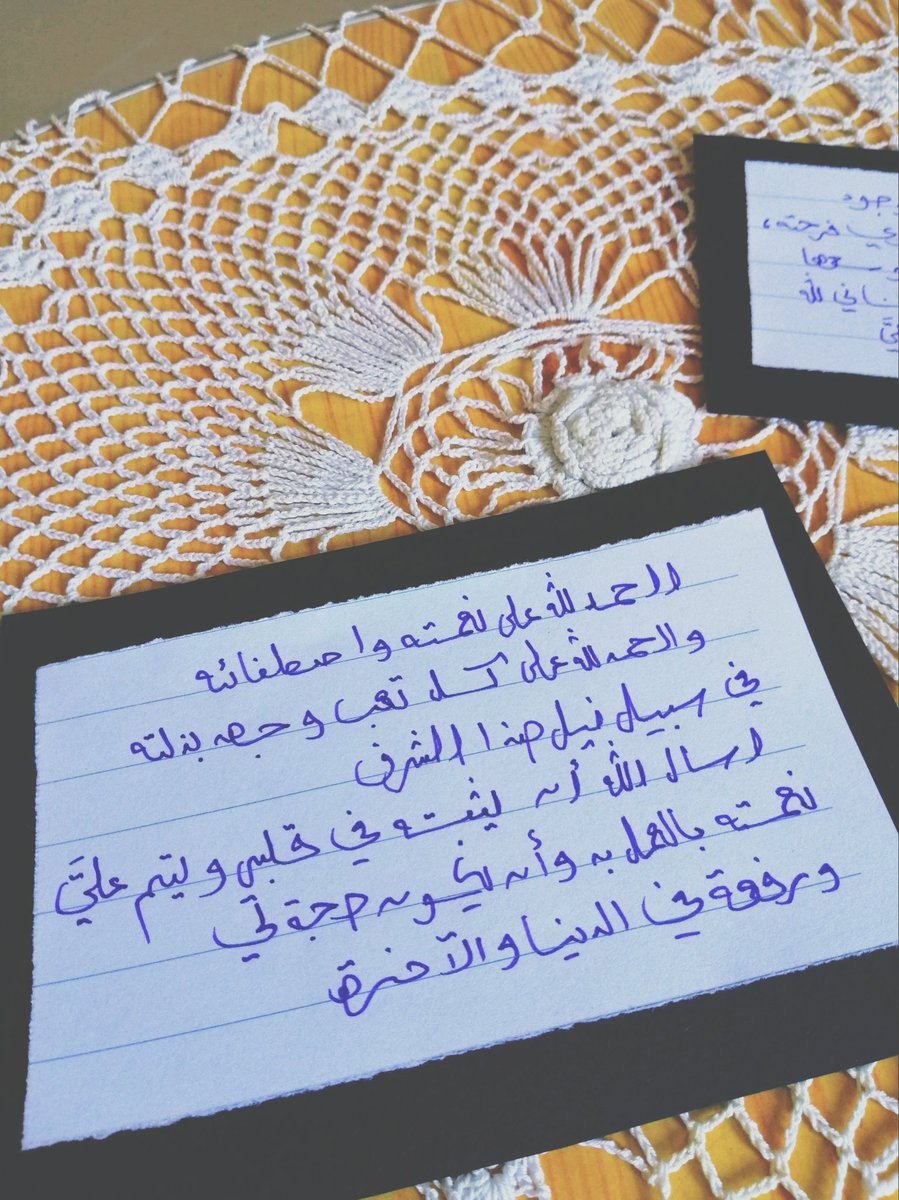 الحمد لله على نعمته واصطفائه
والحمد لله على كل تعب وجهد بذلته
في سبيل نيل هذا الشرف
اسال الله أن يثبته في قلبي ويتم عليّ
نعمته بالعمل به وأن يكون حجة لي
ورفعة في الدنيا والآخرة
فرحته،
في الله